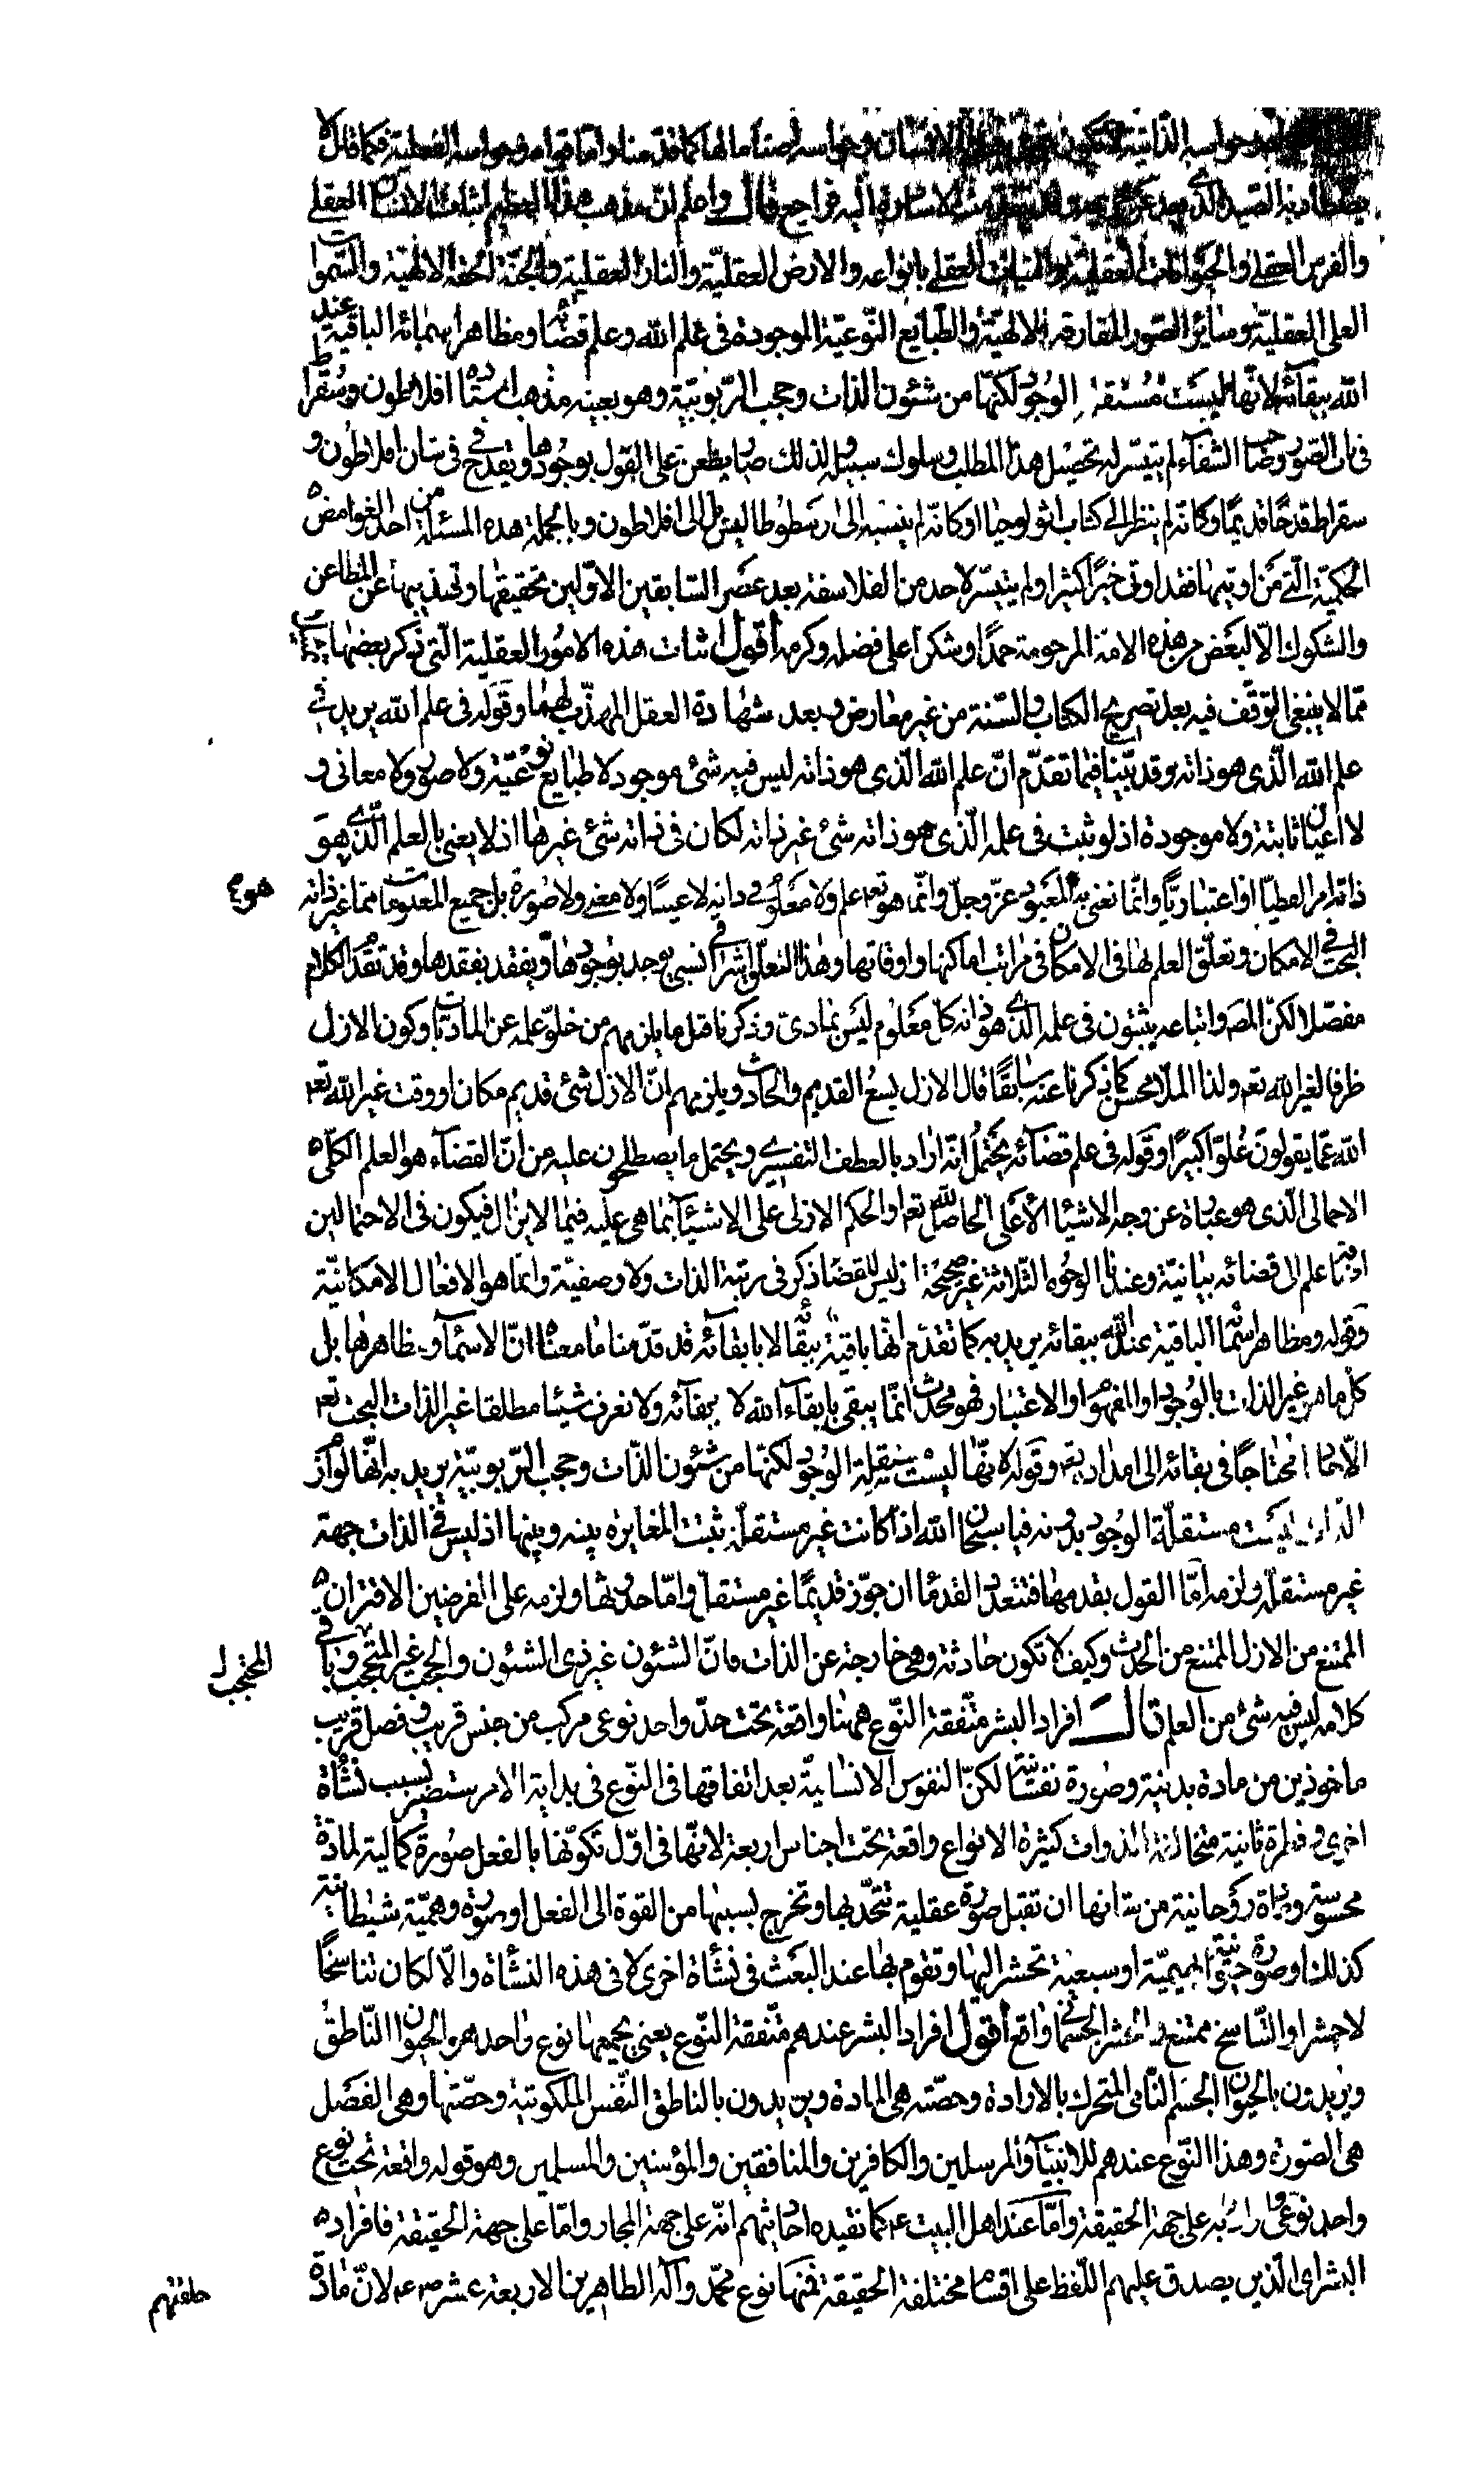 وحواسه الذاتية الانسان وحواسه اصنامالها كما قدمنا واما قواه وحواسه الفعلية فكما قال
الصيد الذى الاشارة اليه فراجع قال واعلم ان مذهب هذا العظيم اثبات الانسان العقلى
والفرس العقلى والحيوانات العقلية والنبات العقلى بانواعه والارض العقليّة والنار العقلية والجنّة الالهيّة والسّموات
العلى العقليّة وسائر الصّور المفارقة الالهيّة والطبايع النّوعيّة الموجودة فى علم الله وعلم قضائه ومظاهر اسمائه الباقية عند
الله ببقائه لانّها ليست مستقلة الوجود لكنّها من شئون الذات وحجب الرّبوبيّة وهو بعينه مذهب استاده افلاطون وسقراط
فى باب الصّور وصاحب الشفاء لم يتيسّر له تحصيل هذا المطلب وسلوك سبيله ولذلك صار يطعن على القول بوجودها ويقدح فى شان افلاطون و
سقراط قدحًا قديمًا وكانه لم ينظر الى كتاب اثولوجيا او كانّه لم ينسبه الى ارسطوطاليس بل الى افلاطون وبالجملة هذه المسئلة من احد الغوامض
الحكميّة الّتى من اوتيها فقد اوتى خيرًا كثيرا ولم يتيسّر لاحد من الفلاسفة بعد عصر السّابقين الاوّلين تحقيقها وتهذيبها عن المطاعن
والشكوك الّا لبعض من هذه الامّة المرحومة حمدًا وشكرا على فضله وكرمه اقول اثبات هذه الامور العقلية الّتى ذكر بعضها
ممّا لا ينبغى التوقّف فيه بعد تصريح الكتاب والسّنة من غير معارض وبعد شهادة العقل المهذّب بهما وقوله فى علم الله يريد فى
علم الله الّذى هو ذاته وقد بيّنّا فيما تقدّم انّ علم الله الّذى هو ذاته ليس فيه شئ موجود لا طبايع نوعيّة ولا صور ولا معانى و
لا اعيان ثابتة ولا موجودة اذ لو ثبت فى علمه الّذى هو ذاته شئ غير ذاته لكان فى ذاته شئ غيرها اذ لا يعنى بالعلم الّذى هو
ذاته امرا واعتباريّا وانّما نعنى به المعبود عزّ وجلّ وانّما هو تعه علم ولا معلوم فى ذاته لا عينًا ولا معنى ولا صورة بل جميع المعلومات ممّا غير ذاته
هو
البحت فى الامكان وتعلّق العلم بها فى الامكان فى مراتب اماكنها واوقاتها وهذا التعلّق اشراقى نسبى يوجد بوجودها ويفقد بفقدها وقد تقدّم الكلام
مفصّلا لكنّ المصّ واتباعه يثبتون فى علمه الّذى هو ذاته كلّ معلوم ليس بمادى وذكرنا قبل ما يلزمهم من خلوّ علمه عن الماديّات وكون الازل
ظرفا لغير الله تعه ولذا الملا محسن كما ذكرنا عنه سابقًا قال الازل يسع القديم والحادث ويلزمهم انّ الازل شئ قديم مكان او وقت غير الله تعه
الله عمّا يقولون علوّا كبيرًا وقوله فى علم قضائه يحتمل انّه اراد بالعطف التفسيرى ويحتمل ما يصطلحون عليه من انّ القضاء هو العلم الكلّى
الاجمالى الّذى هو عبارة عن وجه الاشياء الأعلى الحاصل لله تعه او الحكم الازلى على الاشياء بما هى عليه فيما لا يزال فيكون فى الاحتمالين
اضافة علم الى قضائه بيانيّة وعندنا الوجوه الثلاثة غير صحيحة اذ ليس للقضاء ذكر فى رتبة الذات ولا وصفيّة وانما هو الافعال الامكانيّة
وقوله ومظاهر اسمائه الباقية عند الله ببقائه يريد به كما تقدّم انّها باقية ببقائه لا بابقائه قد قدّمنا ما معناه انّ الاسماء ومظاهرها بل
كل ما هو غير الذات بالوجود او المفهوم او الاعتبار فهو محدث انّما يبقى بابقاء الله لا ببقائه ولا نعرف شيئا مطلقا غير الذات البحت تعه
الّا محتاجًا فى بقائه الى امداده وقوله لانّها ليست مستقلة الوجود لكنّها من شئون الذّات وحجب الرّبوبيّة يريد به انّها لوازم
الذات ليست مستقلّة الوجود بدونه فيا سبحان الله اذا كانت غير مستقلّة ثبتت المغايرة بينه وبينها اذ ليس فى الذات جهة
غير مستقلّة ولزمه امّا القول بقدمها فتتعدّد القدما ان جوّز قديمًا غير مستقل وامّا حدوثها ولزمه على الفرضين الاقتران
الممتنع من الازل الممتنع من الحدث وكيف لا تكون حادثة وهى خارجة عن الذات فانّ الشئون غير ذى الشئون والحجب غير المتحجّب وباقى
المحتجب ل
كلامه ليس فيه شئ من العلم قال افراد البشر متّفقة النّوع ههنا واقعة تحت حدّ واحد نوعى مركب من جنس قريب وفصل قريب
ماخوذين من مادة بدنية وصورة نفسانيّة لكنّ النفوس الانسانيّة بعد اتفاقها فى النّوع فى بداية الامر ستصير بسبب نشأة
اخرى وفطرة ثانية متخالفة الذوات كثيرة الانواع واقعة تحت اجناس اربعة لانّها فى اوّل تكوّنها بالفعل صورة كمالية لمادّة
محسوسة ومادة روحانية من شانها ان تقبل صورة عقلية تتّحد بها وتخرج بسببها من القوة الى الفعل او صورة وهميّة شيطانية
كذلك او صورة حيوانيّة بهيميّة او سبعيّة تحشر اليها وتقوم بها عند البعث فى نشأة اخرى لا فى هذه النشأة والّا لكان تناسخًا
لا حشرا والتّناسخ ممتنع والحشر الجسمانى واقع اقول افراد البشر عندهم متّفقة النّوع يعنى بجميعها نوع واحد هو الحيوان النّاطق
ويريدون بالحيوان الجسم النّامى المتحرك بالارادة وحصّته هى المادة ويريدون بالناطق النّفس الملكوتية وحصّتها وهى الفصل
هى الصّورة وهذا النّوع عندهم للانبيآء والمرسلين والكافرين والمنافقين والمؤمنين والمسلمين وهو قوله واقعة تحت نوع
واحد نوعى على جهة الحقيقة وامّا عند اهل البيت ع كما تفيده احاديثهم انّه على جهة المجاز وامّا على جهة الحقيقة فافراد
البشر اى الّذين يصدق عليهم اللّفظ على اقسام مختلفة الحقيقة فمنها نوع محمّد وآله الطاهرين الاربعة عشر ص ع لانّ مادّة
خلقتهم